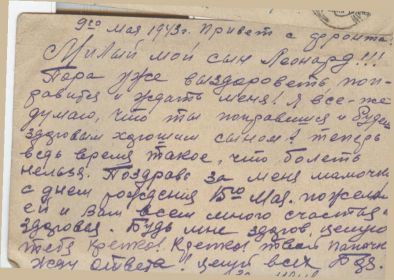 9го Мая 1943г. Привет с фронта.
Милый мой сын Леонард!!!
Пора уже выздороветь, поп-
равится и ждать меня! Я все-же
думаю, что ты поправишся и будеш
здоровым хорошим сыном! теперь
ведь время такое, что болеть
нельзя. Поздравь за меня мамочку
с днем рождения 15го Мая. пожелай
ей и Вам всем много счастья
здоровья. Будь мне здоров, целую
тебя Крепко! Крепко! твой Папочка
Жду ответа! целуй всех